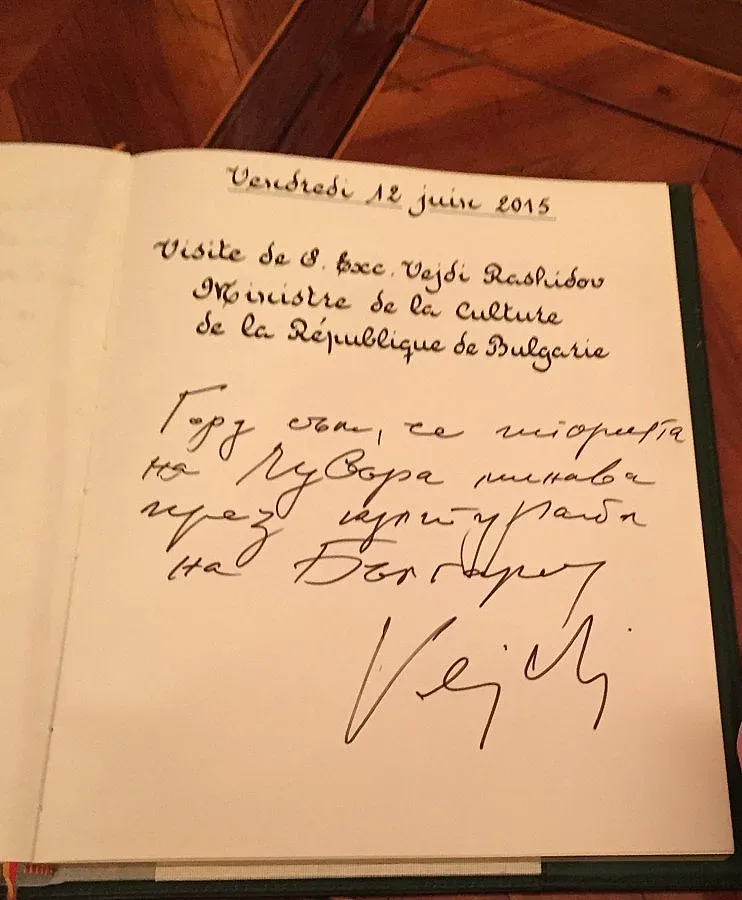 Vendredi 12 juin 2015
Visite de S. Exc. Vejdi Rashidov
Ministre de la Culture
de la République de Bulgarie
Горд съм, че историята
на Лувъра минава
през културата
на България
Vejdi